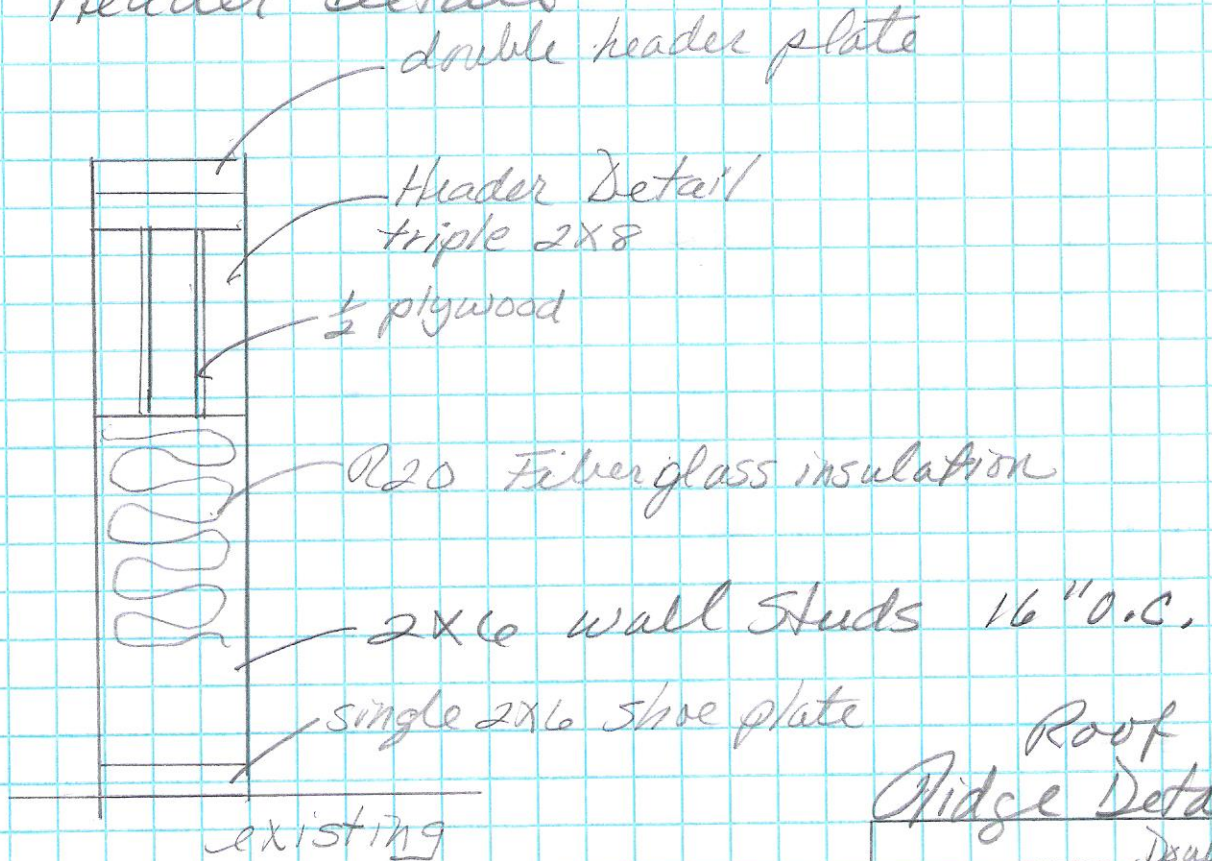 Header Details
double header plate
Header Detail
triple 2x8
1/2 plywood
R20 Fiberglass insulation
2x6 wall Studs 16" O.C.
single 2x6 shoe plate
existing
Roof
Ridge Deta